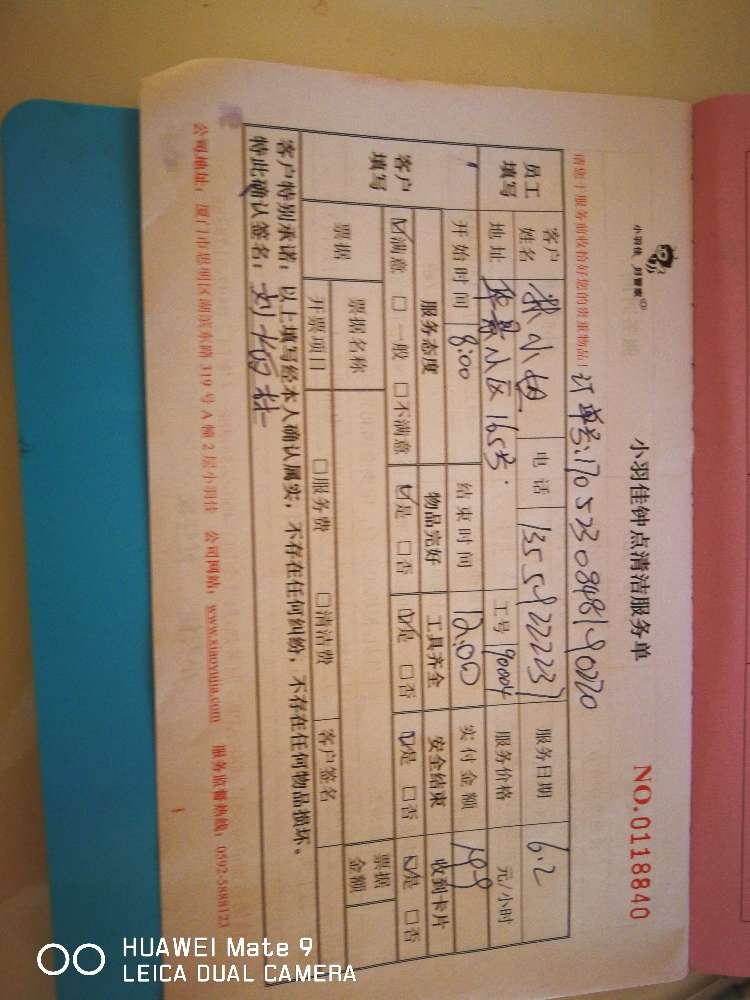 小羽佳 好管家
小羽佳钟点清洁服务单
NO.0118840
请您于服务前收拾好您的贵重物品！
订单号:
员工填写 客户姓名 小姐 电话 服务日期 6.2
地址 华景小区165号. 工号 90004 服务价格 元/小时
客户填写 开始时间 8:00 结束时间 12.00 实付金额
服务态度 物品完好 工具齐全 安全结束 收到卡片
☑满意 □一般 □不满意 ☑是 □否 ☑是 □否 ☑是 □否 ☑是 □否
票据 票据名称 票据金额
开票项目 □服务费 □清洁费 客户签名
客户特别承诺：以上填写经本人确认属实，不存在任何纠纷，不存在任何物品损坏。
特此确认签名：
公司地址：厦门市思明区湖滨东路319号A幢2层小羽佳 公司网站：www.xiaoyujia.com 服务监督热线：0592-5888123
HUAWEI Mate 9
LEICA DUAL CAMERA